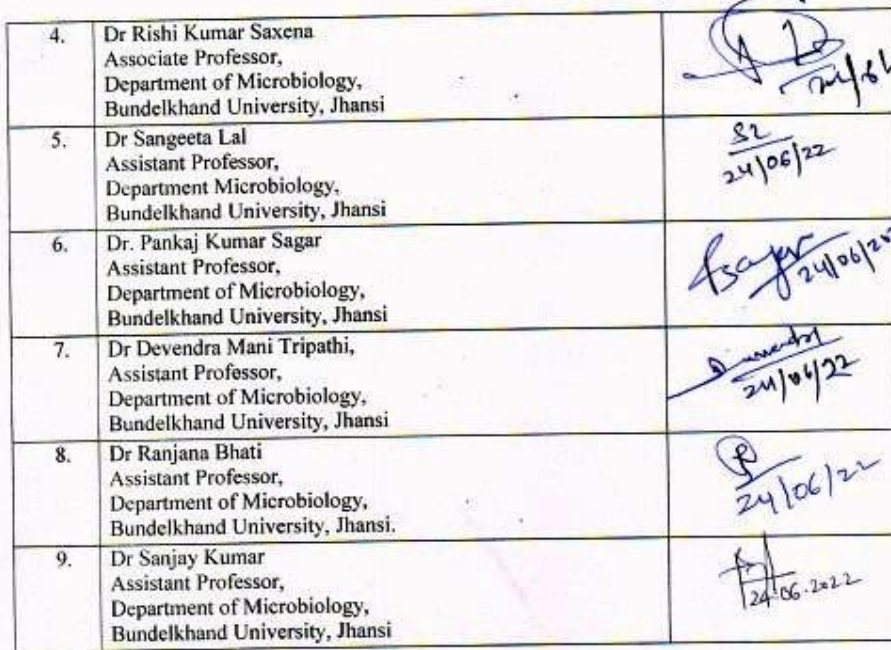 4. Dr Rishi Kumar Saxena
Associate Professor,
Department of Microbiology,
Bundelkhand University, Jhansi
5. Dr Sangeeta Lal
Assistant Professor,
Department Microbiology,
Bundelkhand University, Jhansi
SL
24/06/22
6. Dr. Pankaj Kumar Sagar
Assistant Professor,
Department of Microbiology,
Bundelkhand University, Jhansi
24/06/
7. Dr Devendra Mani Tripathi,
Assistant Professor,
Department of Microbiology,
Bundelkhand University, Jhansi
24/06/22
8. Dr Ranjana Bhati
Assistant Professor,
Department of Microbiology,
Bundelkhand University, Jhansi.
24/06/22
9. Dr Sanjay Kumar
Assistant Professor,
Department of Microbiology,
Bundelkhand University, Jhansi
24-06-2022